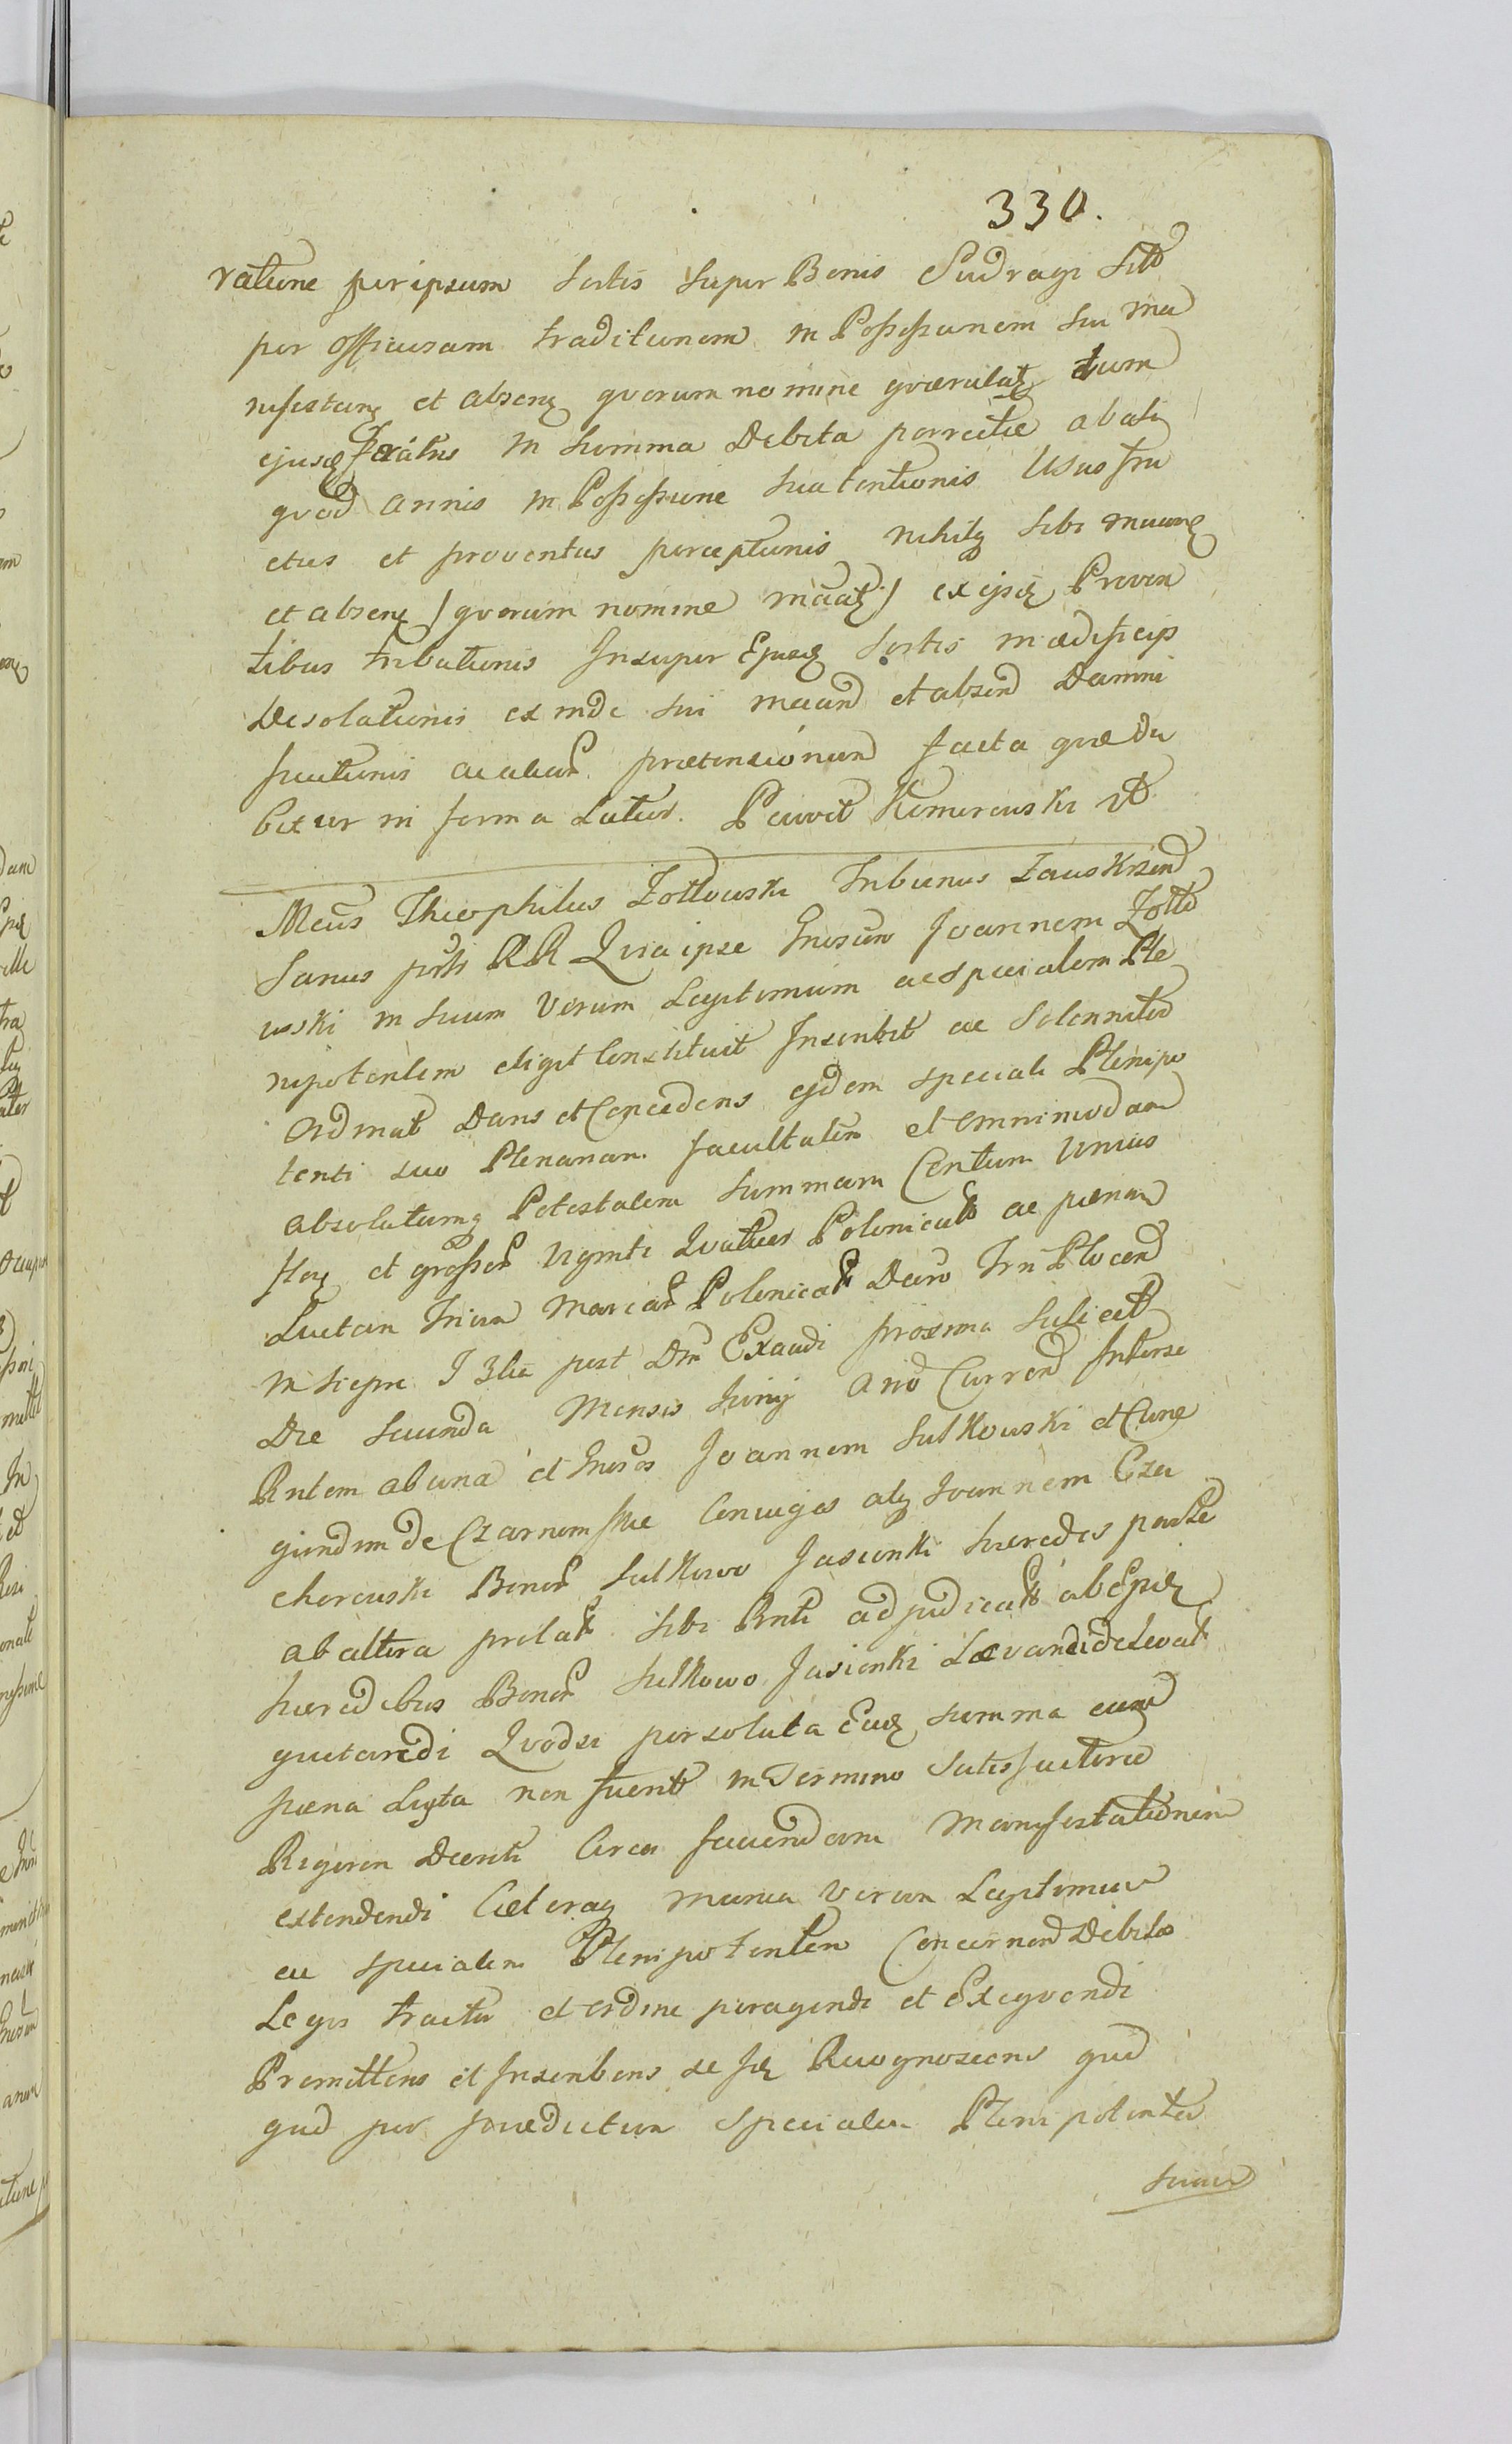 330.
ratione per ipsum Sortis super Bonis Sudragi Sitt
per officiosam traditionem in Possessionem sui ma
nifestanz et absenz quorum nomine quærulatz dum
ejusq in summa Debita porrectæ
quod annis in Possessione sua tentionis Usus fru
ctus et proventus perceptionis nihilq sibi
et absenz / quorum nomine / ex ijsq Proven
tibus tributionis Insuper Ejusq Sortis in ædificijs
Desolationis ex inde sui et absend Damni
prætensionum facta quæ da
bitur in forma Latiori. Komorowski
Theophilus Zottowski Tribunus Zauskrzend
Sanus Quia ipse Gnosum Joannem Zotto
wski in suum Verum Legitimum ac specialem Ple
nipotentem eligit Constituit Inscribit ac Solenniter
Ordinat Dans et Concedens ejdem speciali Plenipo
tenti suo Plenariam facultatem et omnimodam
absolutamq Potestatem Summam Centum Unius
flor et grossor Viginti Quatuor Polonical ac pænam
Luctam Trium Marcar Polonical Decro Trn Plocen
in siepre post Dm Exaudi proxima Scilicet
Die Secunda Mensis Junij Anno Curren Inter se
Rntem ab una et Gnosos Joannem Sulkowski et Cune
gundim de Czarnomskie Conjuges atq Joannem Cza
chorowski Bonor Sulkowo Jasionki hæredes parte
ab altera prolat sibi Rnti adjudicat ab Ejsq
hæredibus Bonor Sulkowo Jasionki Lævandi de Levat
quietandi Quodsi persoluta Eadq summa cum
pæna Lucta non fuerit in Termino Satisfactoria
Rigorem Decreti Circa faciendam Manifestationem
extendendi Cæteraq munia Verum Legitimum
ac specialem Plenipotentem Concernend Debito
Legis tractu et ordine peragendi et Exequendi
Promittens et Inscribens se Recognoscens quid
quid per prædictum Specialem Plenipotentem
suum